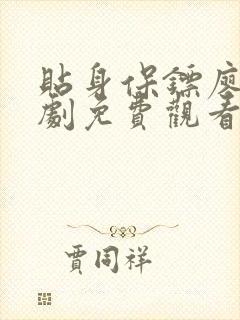 貼身保鏢廖
劇免費觀看
賈同祥